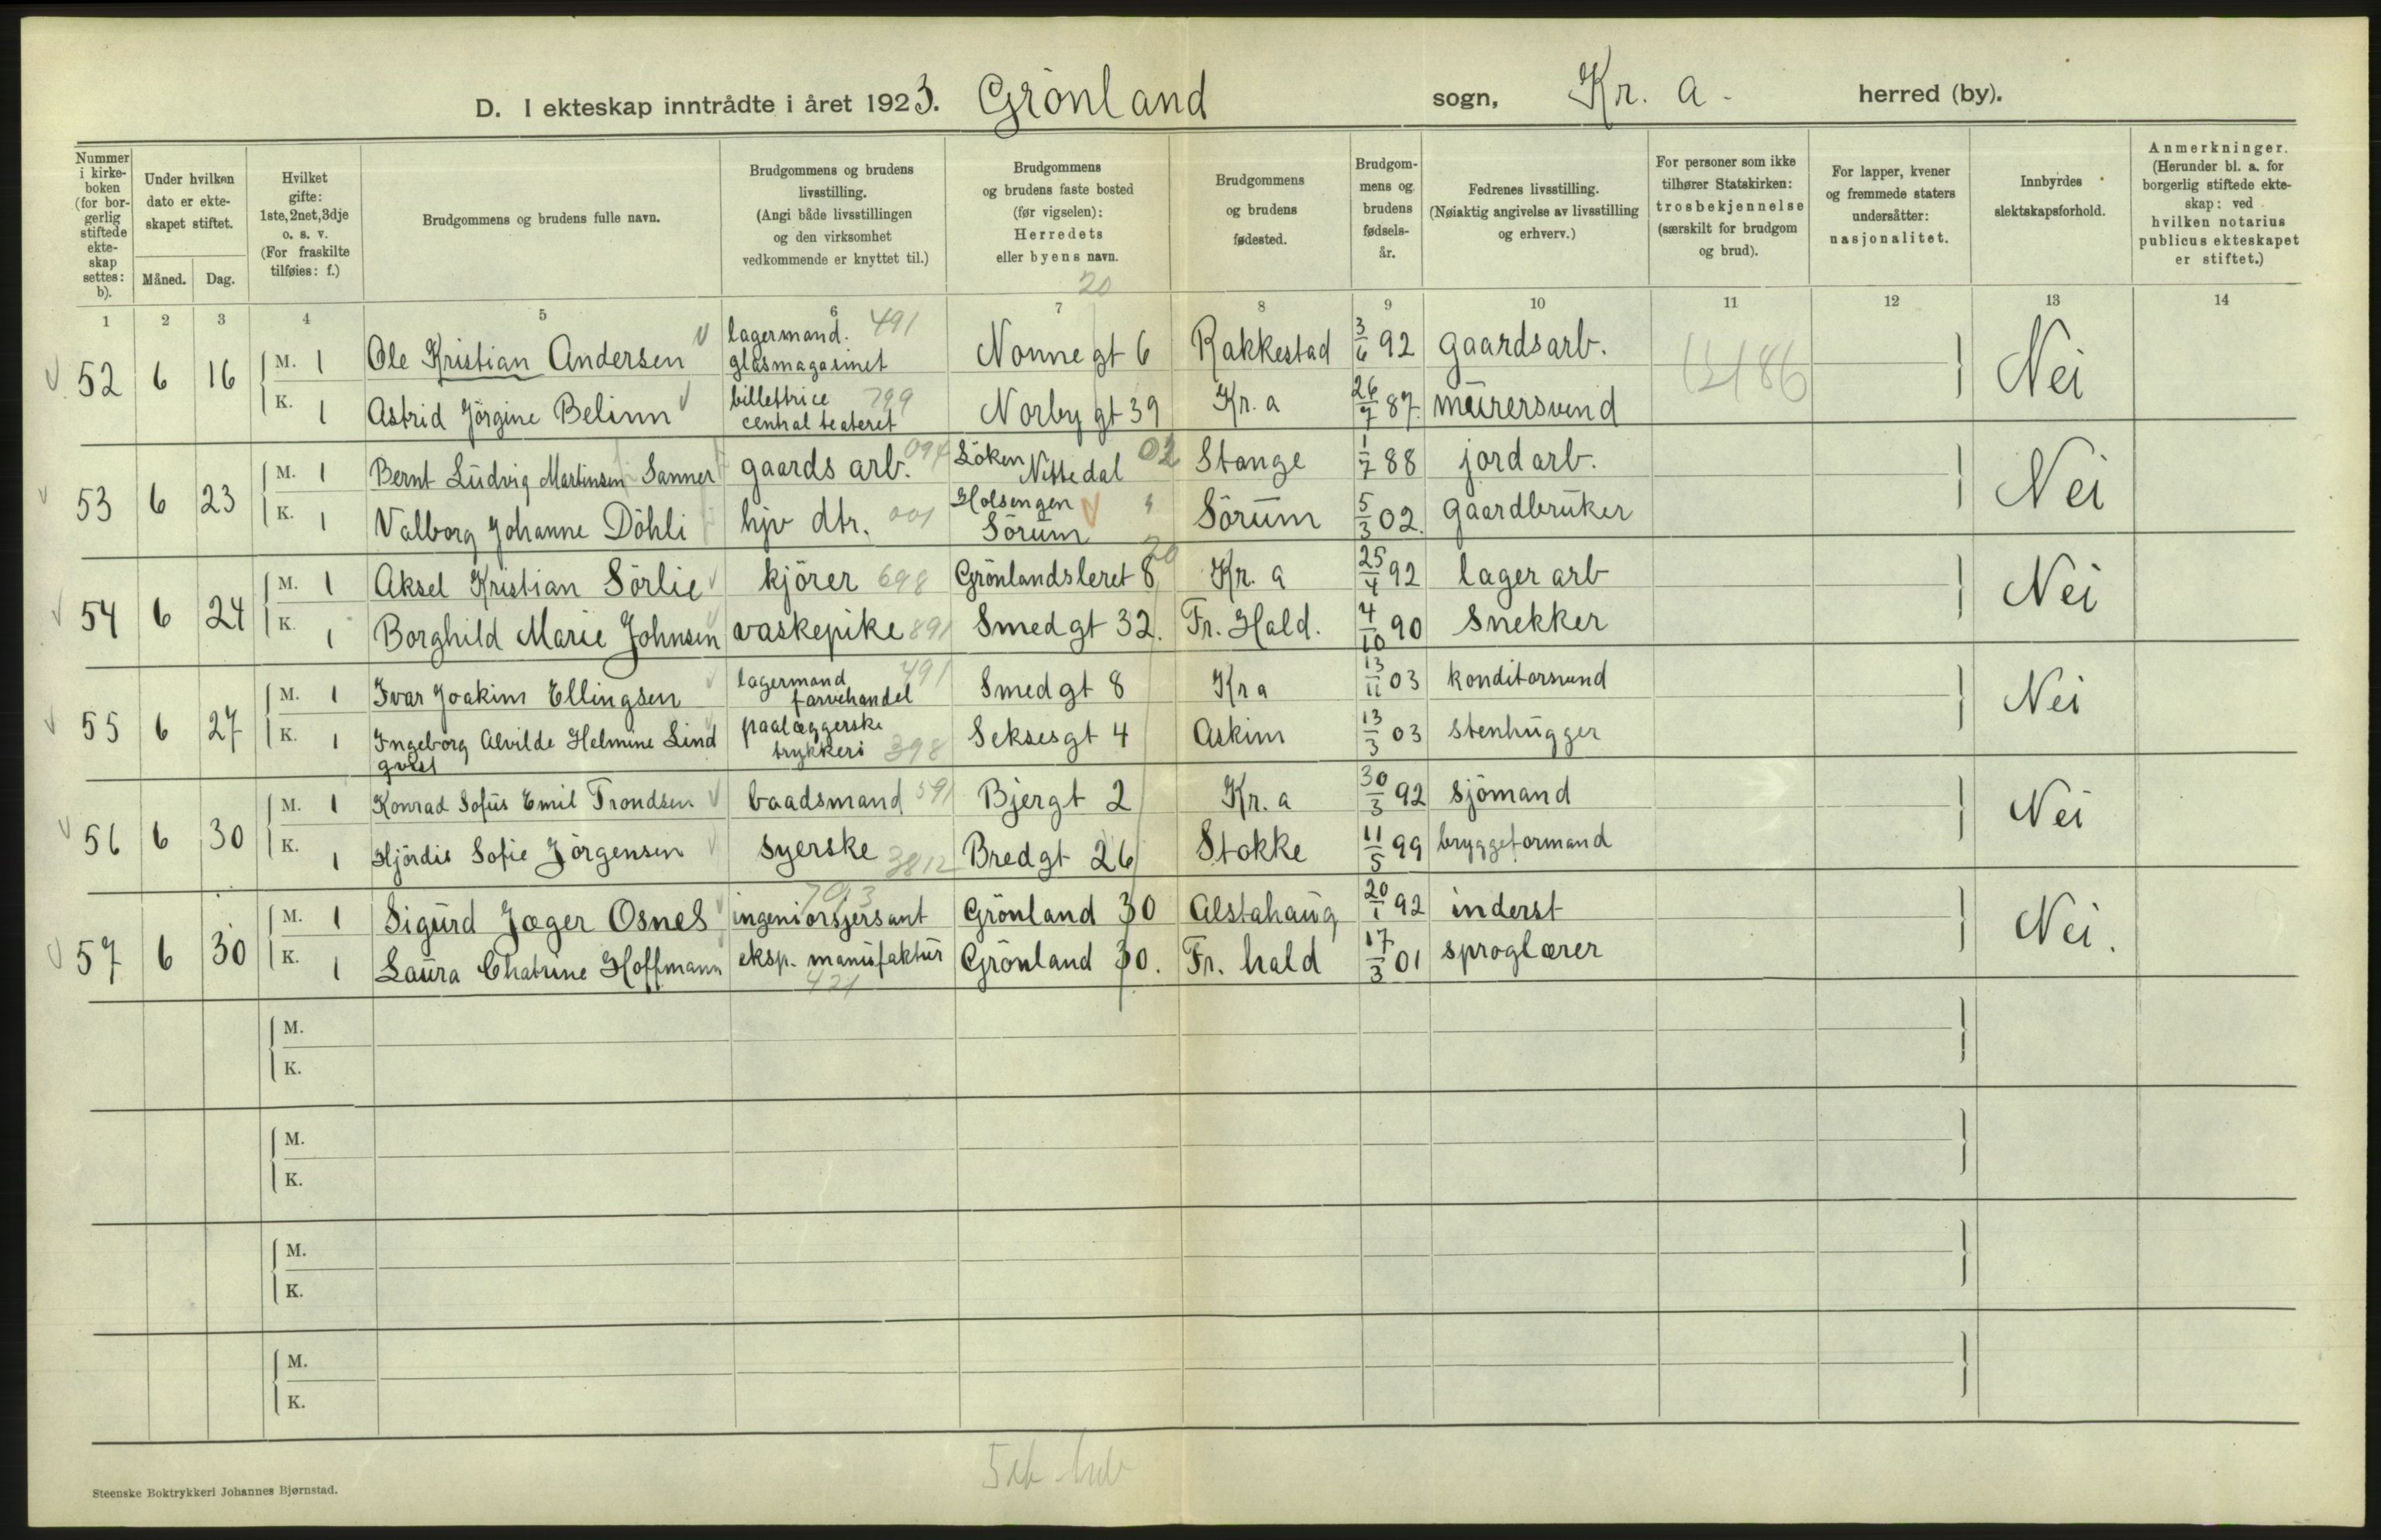 D. I ekteskap inntrådte i året 1923. Grönland sogn, Kr. a - herred (by).
Nummer i kirkeboken (for borgerlig stiftede ekteskap settes: b).
Under hvilken dato er ekteskapet stiftet.
Måned. Dag.
Hvilket gifte: 1ste, 2net, 3dje o. s. v. (For fraskilte tilføies: f.)
Brudgommens og brudens fulle navn.
Brudgommens og brudens livsstilling. (Angi både livsstillingen og den virksomhet vedkommende er knyttet til.)
Brudgommens og brudens faste bosted (før vigselen): Herredets eller byens navn.
Brudgommens og brudens fødested.
Brudgommens og brudens fødselsår.
Fedrenes livsstilling. (Nøiaktig angivelse av livsstilling og erhverv.)
For personer som ikke tilhører Statskirken: trosbekjennelse (særskilt for brudgom og brud).
For lapper, kvener og fremmede staters undersåtter: nasjonalitet.
Innbyrdes slektskapsforhold.
Anmerkninger. (Herunder bl. a. for borgerlig stiftede ekteskap: ved hvilken notarius publicus ekteskapet er stiftet.)
20
1 2 3 4 5 6 7 8 9 10 11 12 13 14
52 6 16 M. 1 Ole Kristian Andersen lagermand. glasmagasinet 491 Nonnegt 6 Rakkestad 3/6 92 gaardsarb. Nei
K. 1 Astrid Jörgine Belinn billettrice central teateret 799 Norbygt 39 Kr. a 26/7 87. mürersvend
53 6 23 M. 1 Bernt Ludvig Martinsen Sanner gaards arb. Löken Nittedal 02 Stange 1/7 88 jordarb. Nei
K. 1 Valborg Johanne Döhli hjv dtr. 001 Holsengen Sörum " Sörum 5/3 02. gaardbruker
54 6 24 M. 1 Aksel Kristian Sörlie kjörer 698 Grönlandsleret 8 20 Kr. a 25/4 92 lager arb Nei
K. 1 Borghild Marie Johnsen vaskepike 891 Smedgt 32. Fr. Hald. 4/10 90 Snekker
55 6 27 M. 1 Ivar Joakim Ellingsen lagermand farvehandel 491 Smedgt 8 Kr a 13/11 03 konditorsvend Nei
K. 1 Ingeborg Alvilde Helmine Lindqvist paalæggerske trykkeri 398 Seksesgt 4 Askim 13/3 03 stenhugger
56 6 30 M. 1 Konrad Sofus Emil Trondsen baadsmand 591 Bjergt 2 Kr. a 30/3 92 sjömand Nei
K. 1 Hjördis Sofie Jörgensen syerske 3812 Bredgt 26 Stokke 11/5 99 bryggeformand
57 6 30 M. 1 Sigurd Jæger Osnes ingeniörsjersant Grönland 30 Alstahaug 20/1 92 inderst Nei.
K. 1 Laura Chatrine Hoffmann eksp. manufaktur 421 Grönland 30. Fr. hald 17/3 01 sproglærer
M.
K.
M.
K.
M.
K.
M.
K.
Steenske Boktrykkeri Johannes Bjørnstad.